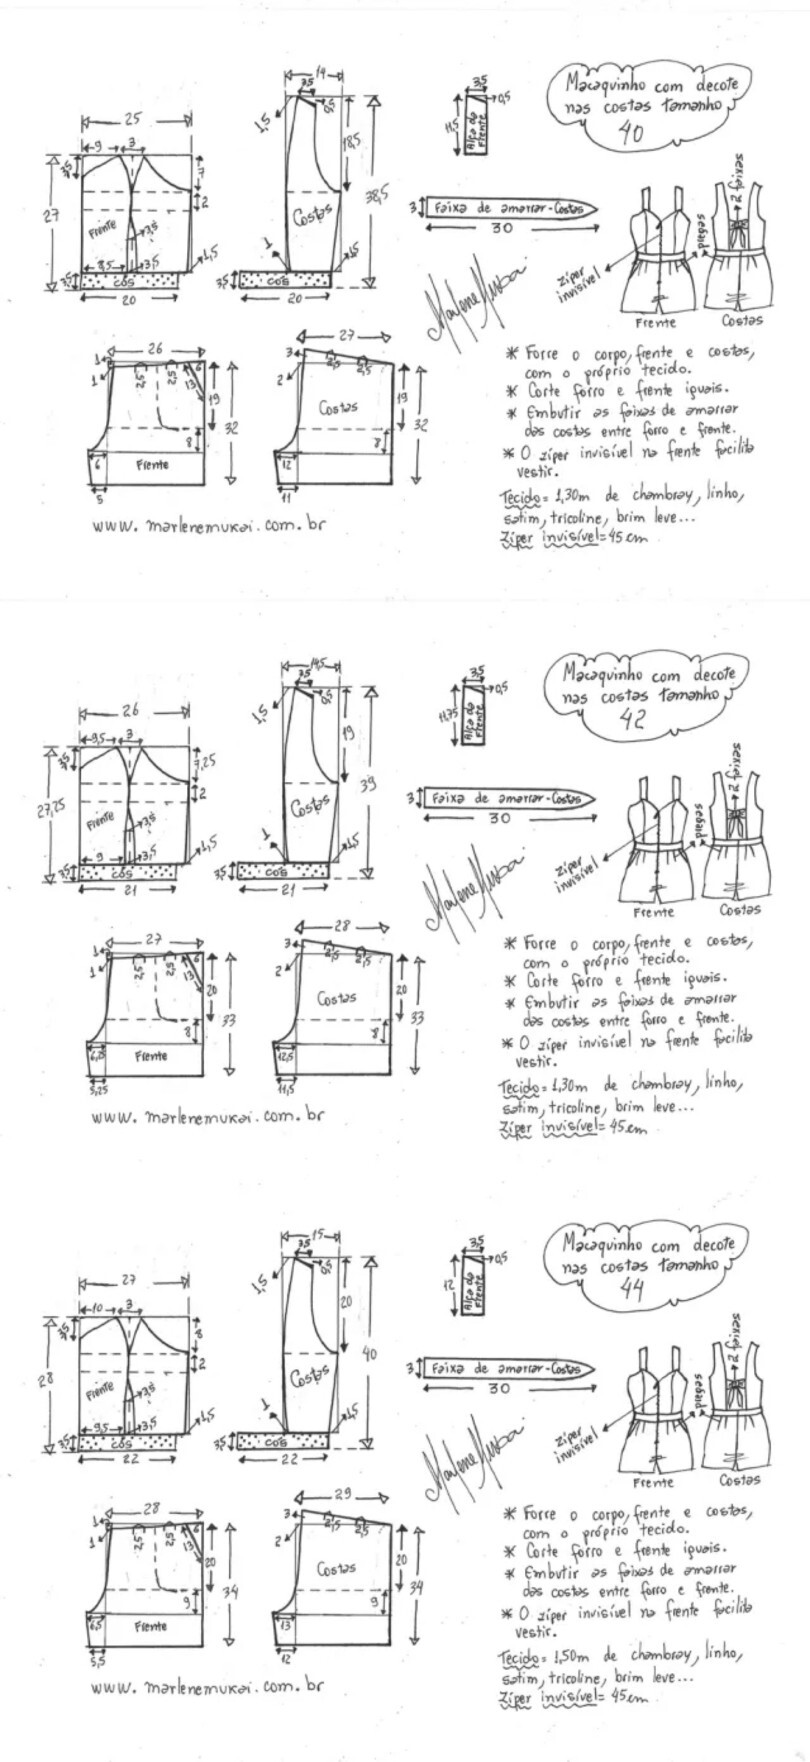 Macaquinho com decote
nas costas tamanho
40
25
9
3
3,5
7
2
27
Frente
3,5
8,5
3,5
1,5
3,5
cós
20
14
3,5
0,5
1,5
18,5
38,5
Costas
1
1,5
3,5
cós
20
3,5
0,5
11,5
Alça da
Frente
3
Faixa de amarrar-Costas
30
2 faixas
pregas
zíper
invisível
Frente
Costas
26
1
1
2,5
2,5
13
6
19
32
8
6
Frente
5
27
3
2
2,5
2,5
Costas
19
32
8
12
11
* Forre o corpo, frente e costas,
com o próprio tecido.
* Corte forro e frente iguais.
* Embutir as faixas de amarrar
das costas entre forro e frente.
* O zíper invisível na frente facilita
vestir.
Tecido= 1,30m de chambray, linho,
satim, tricoline, brim leve...
Zíper invisível= 45 cm
www.marlenemukai.com.br
Macaquinho com decote
nas costas tamanho
42
26
9,5
3
3,5
7,25
2
27,25
Frente
3,5
9
3,5
1,5
3,5
cós
21
14,5
3,5
0,5
1,5
19
39
Costas
1
1,5
3,5
cós
21
3,5
0,5
11,75
Alça da
Frente
3
Faixa de amarrar-Costas
30
2 faixas
pregas
zíper
invisível
Frente
Costas
27
1
1
2,5
2,5
13
6
20
33
8
6,25
Frente
5,25
28
3
2
2,5
2,5
Costas
20
33
8
12,5
11,5
* Forre o corpo, frente e costas,
com o próprio tecido.
* Corte forro e frente iguais.
* Embutir as faixas de amarrar
das costas entre forro e frente.
* O zíper invisível na frente facilita
vestir.
Tecido= 1,30m de chambray, linho,
satim, tricoline, brim leve...
Zíper invisível= 45cm
www.marlenemukai.com.br
Macaquinho com decote
nas costas tamanho
44
27
10
3
3,5
8
2
28
Frente
3,5
9,5
3,5
1,5
3,5
cós
22
15
3,5
0,5
1,5
20
40
Costas
1
1,5
3,5
cós
22
3,5
0,5
12
Alça da
Frente
3
Faixa de amarrar-Costas
30
2 faixas
pregas
zíper
invisível
Frente
Costas
28
1
1
2,5
2,5
13
6
20
34
9
6,5
Frente
5,5
29
3
2
2,5
2,5
Costas
20
34
9
13
12
* Forre o corpo, frente e costas,
com o próprio tecido.
* Corte forro e frente iguais.
* Embutir as faixas de amarrar
das costas entre forro e frente.
* O zíper invisível na frente facilita
vestir.
Tecido= 1,50m de chambray, linho,
satim, tricoline, brim leve...
Zíper invisível= 45cm
www.marlenemukai.com.br